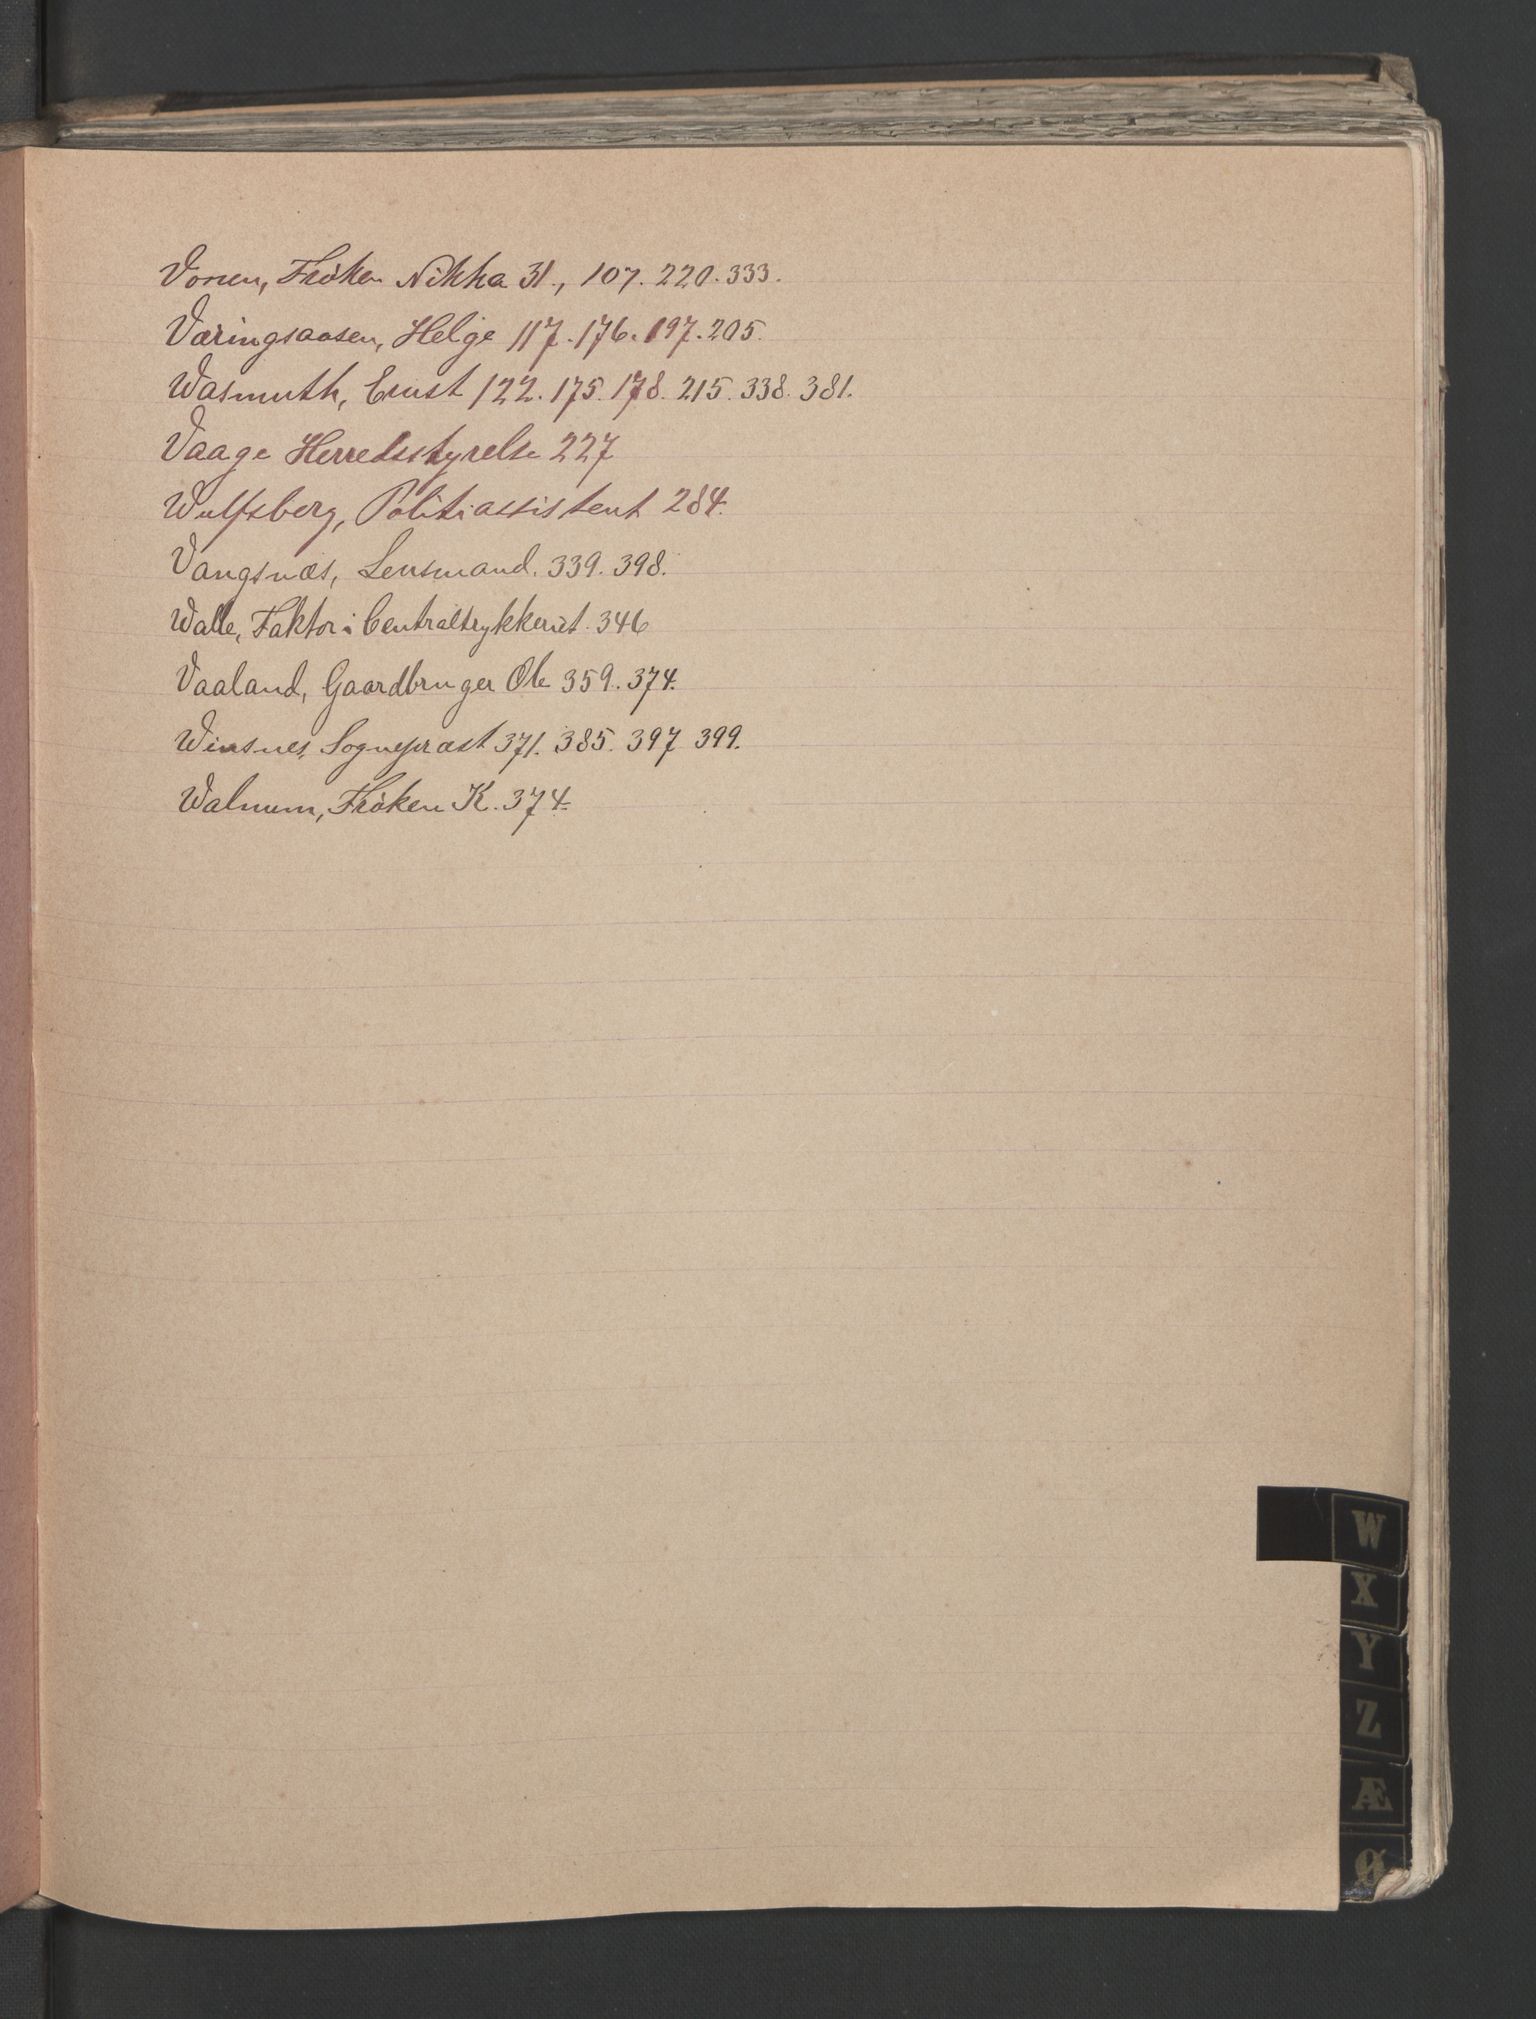 Vonen, Frøken Nikka 31., 107. 220. 333.
Væringsaasen, Helge 117. 176. 197. 205.
Wasmuth, Ernst 122. 175. 178. 215. 338. 381.
Vaage Herredsstyrelse 227
Wulfsberg, Politiassistent 284.
Vangsnæs, Lensmand. 339. 398.
Walle, Faktor i Centraltrykkeriet. 346
Vaaland, Gaardbruger Ole 359. 374.
Winsnes, Sogneprest 371. 385. 397 399.
Walnum, Frøken K. 374.
W
X
Y
Z
Æ
Ø